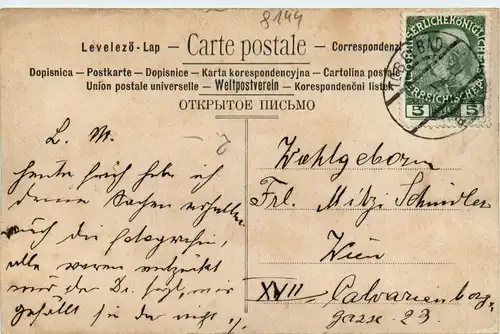 8144
Levelező-Lap — Carte postale — Correspondenzk
Dopisnica - Postkarte - Dopisnice - Karta korespondencyjna - Cartolina postale
Union postale universelle - Weltpostverein - Korespondenční listek
ОТКРЫТОЕ ПИСЬМО
5 5
L. M.
heute früh habe ich
deine Sachen erhalten
auch die fotografien,
alle waren entzückt
nur der
gefällt sie nicht
Wohlgeboren
Frl. Mitzi Schindler
Wien
XVII Calvarienberg,
gasse 23.